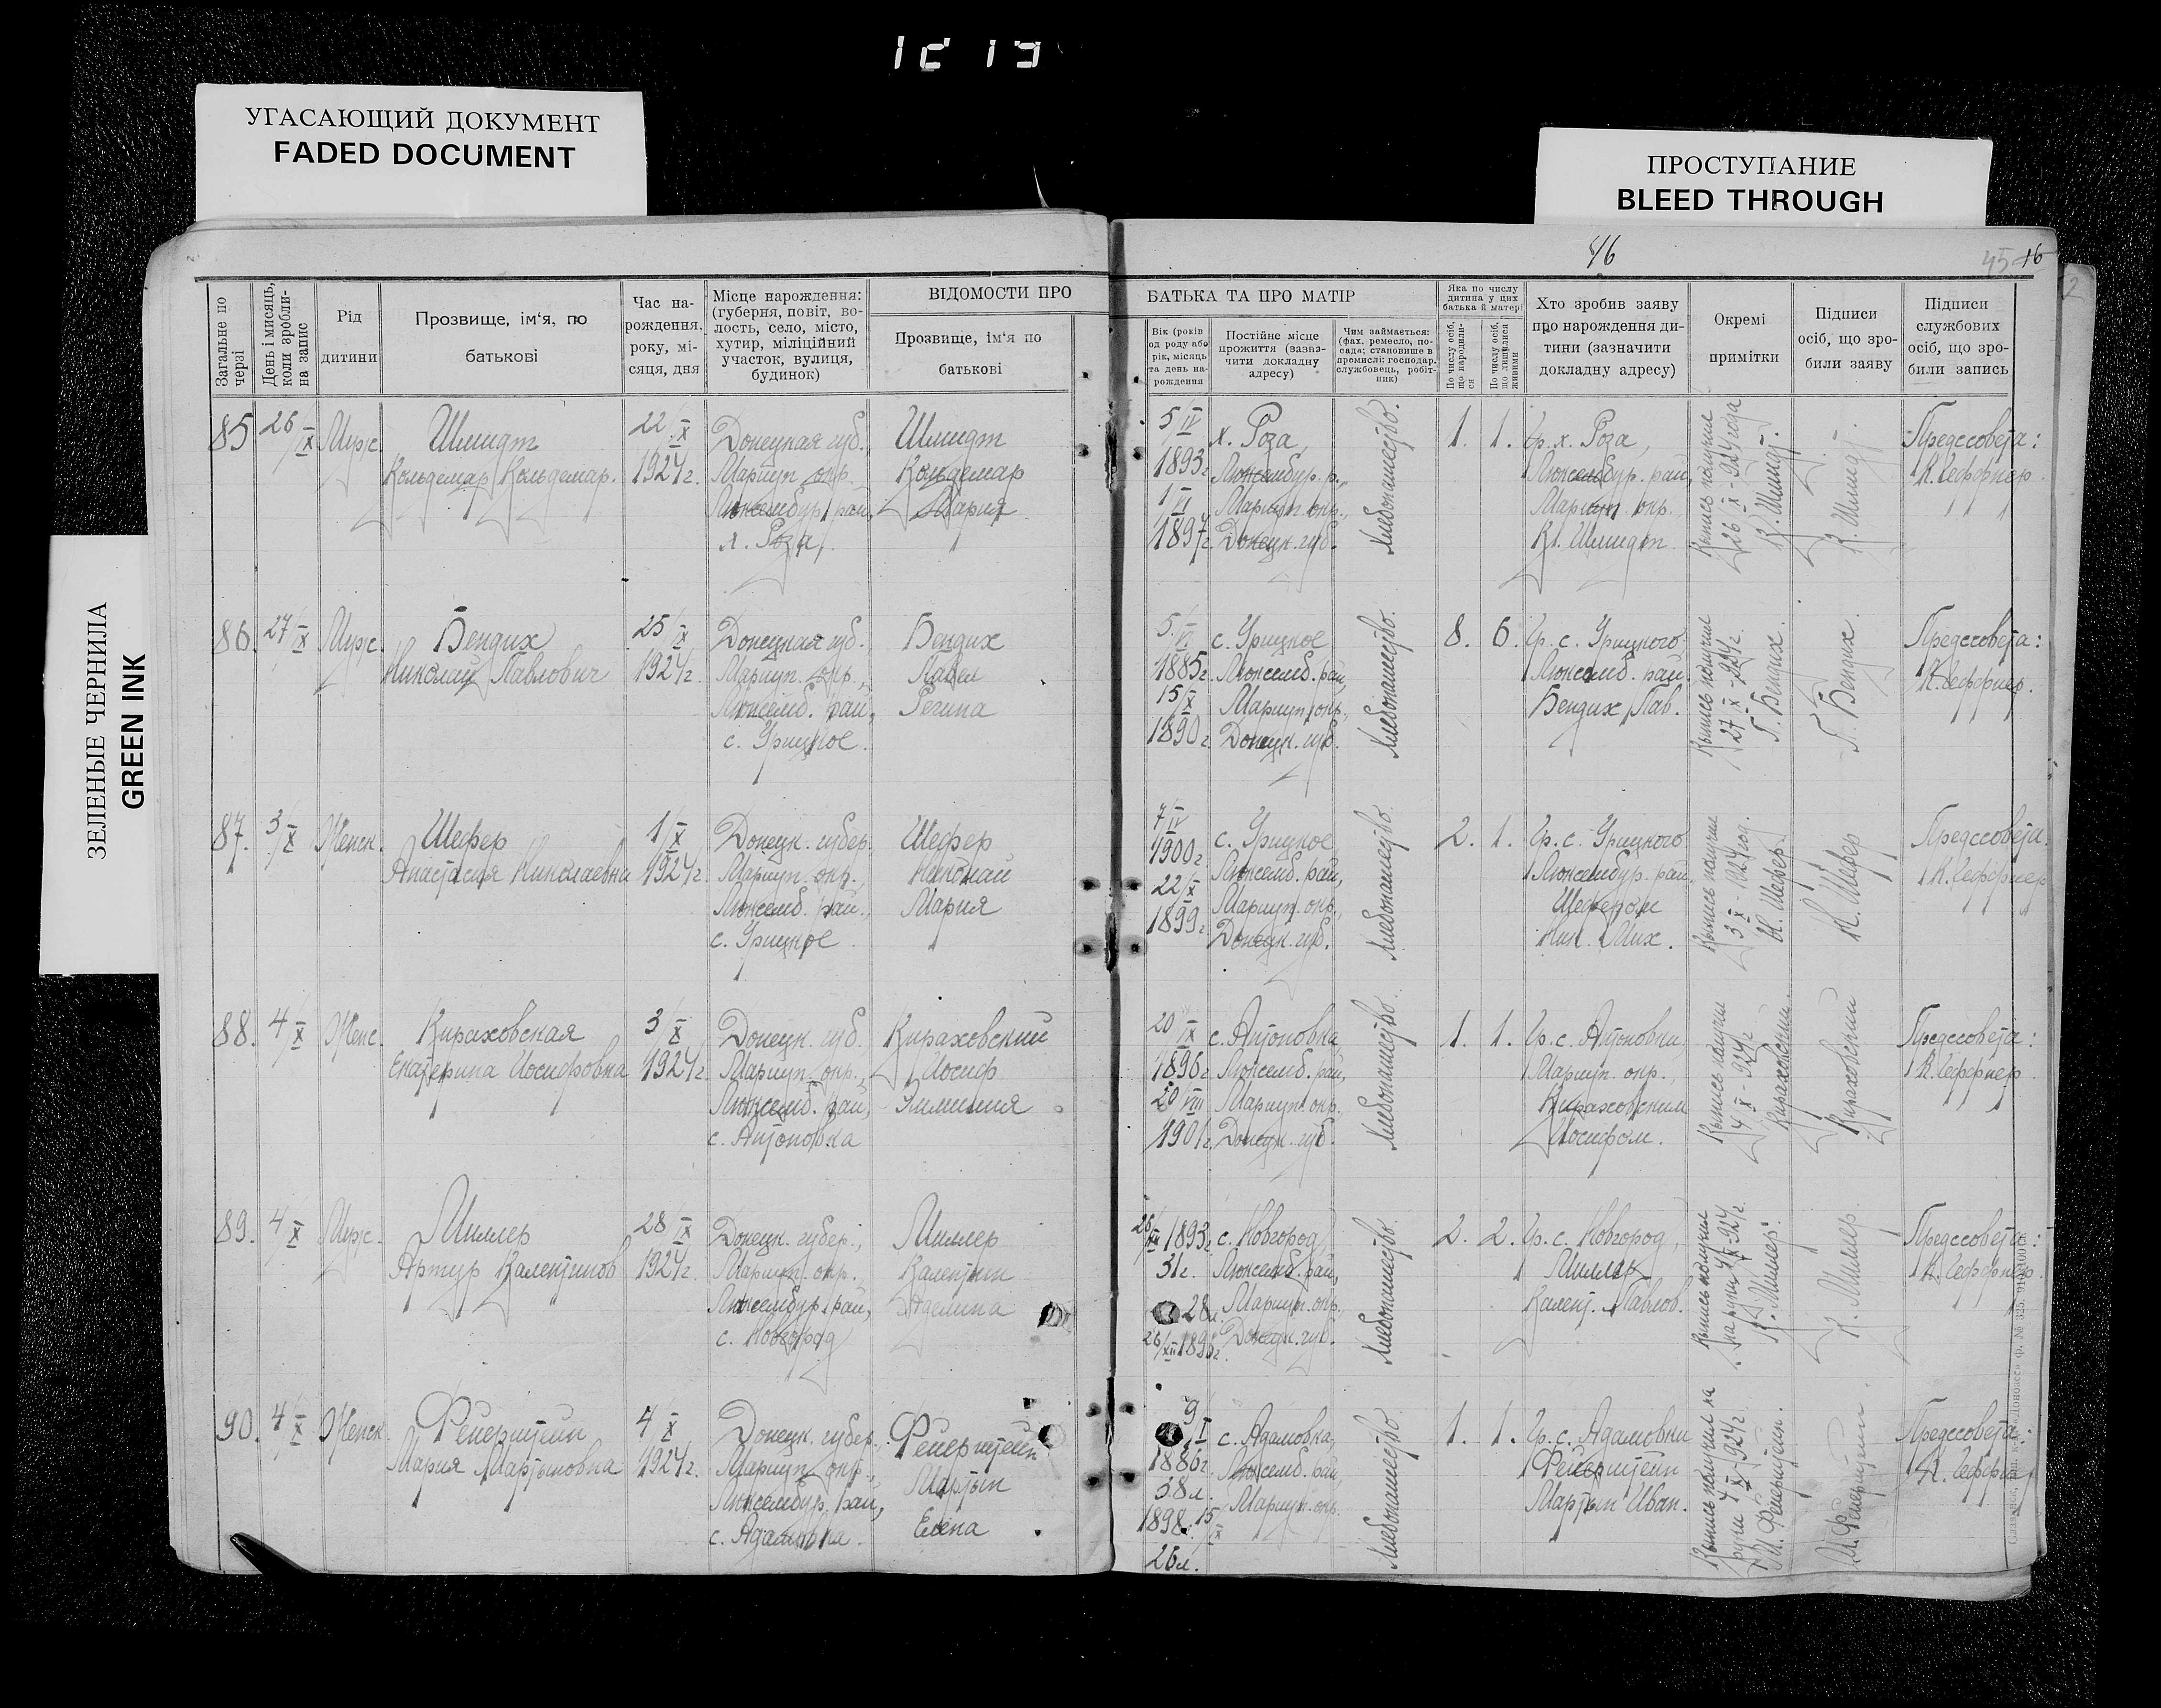 1213
УГАСАЮЩИЙ ДОКУМЕНТ
FADED DOCUMENT
ПРОСТУПАНИЕ
BLEED THROUGH
ЗЕЛЕНЫЕ ЧЕРНИЛА
GREEN INK
46
45
Загальне по черзі
День і мисяць, коли зробли- на запис
Рід дитини
Прозвище, ім'я, по батькові
Час на-
рождення,
року, мі-
сяця, дня
Місце нарождення:
(губерня, повіт, во-
лость, село, місто,
хутир, міліційний
участок, вулиця,
будинок)
ВІДОМОСТИ ПРО
Прозвище, ім'я по
батькові
БАТЬКА ТА ПРО МАТІР
Вік (років
од роду або
рік, місяць
та день на-
рождення
Постійне місце
прожиття (зазна-
чити докладну
адресу)
Чим займається:
(фах, ремесло, по-
сада; становище в
промислі: господар,
службовець, робіт-
ник)
Яка по числу
дитина у цих
батька й матері
По числу осіб, що народили- ся
По числу осіб, що лишилися живими
Хто зробив заяву
про нарождення ди-
тини (зазначити
докладну адресу)
Окремі
примітки
Підписи
осіб, що зро-
били заяву
Підписи
службових
осіб, що зро-
били запись
85
26/IX
Муж.
Шмидт
Кольдемар Кольдемар.
22/IX
1924г.
Донецкая губ.,
Мариуп. окр.
Люксембур. рай,
х. Роза,
Шмидт
Кольдемар
Мария
5/IV
1893г.
1/VI
1897г.
х. Роза,
Люксембур. р.,
Мариуп. окр.,
Донецк. губ.
Хлебопашество.
1.
1.
Гр. х. Роза,
Люксембур. рай,
Мариуп. окр.,
К. Шмидт
26 IX - 924 года
К. Шмидт.
К. Шмидт.
Предссовета:
86.
27/IX
Муж.
Бендих
Николай Павлович
25/IX
1924г.
Донецкая губ.
Мариуп. окр.,
Люксемб. рай,
с. Урицкое.
Бендих
Павел
Регина
5/VI
1885г.
15/X
1890г.
с. Урицкое
Люксемб. рай,
Мариуп. окр.,
Донецк. губ.
Хлебопашество.
8.
6.
Гр. с. Урицкого,
Люксемб. рай.
Бендих Пав.
27 IX - 924г.
П. Бендих.
П. Бендих.
Предссовета:
87.
3/X
Женск.
Шефер
Анастасия Николаевна
1/X
1924г.
Донецк. губер.
Мариуп. окр.,
Люксемб. рай.,
с. Урицкое
Шефер
Николай
Мария
7/IV
1900г.
22/X
1899г.
с. Урицкое
Люксемб. рай,
Мариуп. окр.,
Донецк. губ.
Хлебопашество.
2.
1.
Гр. с. Урицкого
Люксембур. рай.
Шефером
Ник. Мих.
3 X - 1924 год.
Н. Шефер.
Н. Шефер
Предссовета:
88.
4/X
Женс.
Кираховская
Екатерина Иосифовна
3/X
1924г.
Донецк. губ.
Мариуп. окр.,
Люксемб. рай,
с. Антоновка
Кираховский
Иосиф
Эмилия
20/IX
1896г.
20/VIII
1901г.
с. Антоновка
Люксемб. рай,
Мариуп. окр.,
Донецк. губ.
Хлебопашество.
1.
1.
Гр. с. Антоновки
Мариуп. окр.,
Кираховским
Иосифом.
4 X - 924г.
Кираховский
Кираховский
Предссовета:
89.
4/X
Муж.
Миллер
Артур Валентинов
28/IX
1924г.
Донецк. губер.,
Мариуп. окр.
Люксембур. рай,
с. Новгород
Миллер
Валентин
Аделина
1893г.
31г.
28л.
с. Новгород,
Люксемб. рай,
Мариуп. окр.
Донецк. губ.
Хлебопашество.
2.
2.
Гр. с. Новгород,
Миллер
Валент. Павлов.
В. Миллер.
В. Миллер
Предссовета:
90.
4/X
Женск.
Фейерштейн
Мария Мартыновна
4/X
1924г.
Донецк. губер.,
Мариуп. окр.,
Люксембур. рай,
с. Адамовка.
Фейерштейн
Мартын
Елена
9/I
1886г.
38л.
1898г. 15/IX
26л.
с. Адамовка,
Люксемб. рай,
Мариуп. окр.
Хлебопашество.
1.
1.
Гр. с. Адамовки
Фейерштейн
Мартын Иван.
руки 4 X - 924г.
М. Фейерштейн.
М. Фейерштейн
Предссовета: